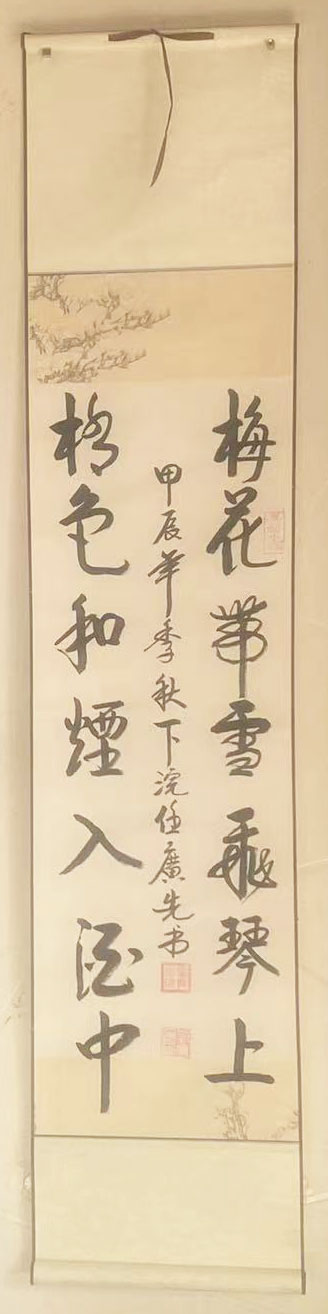 梅花帶雪飛琴上
柳色和煙入酒中
甲辰年季秋下浣任廣先书